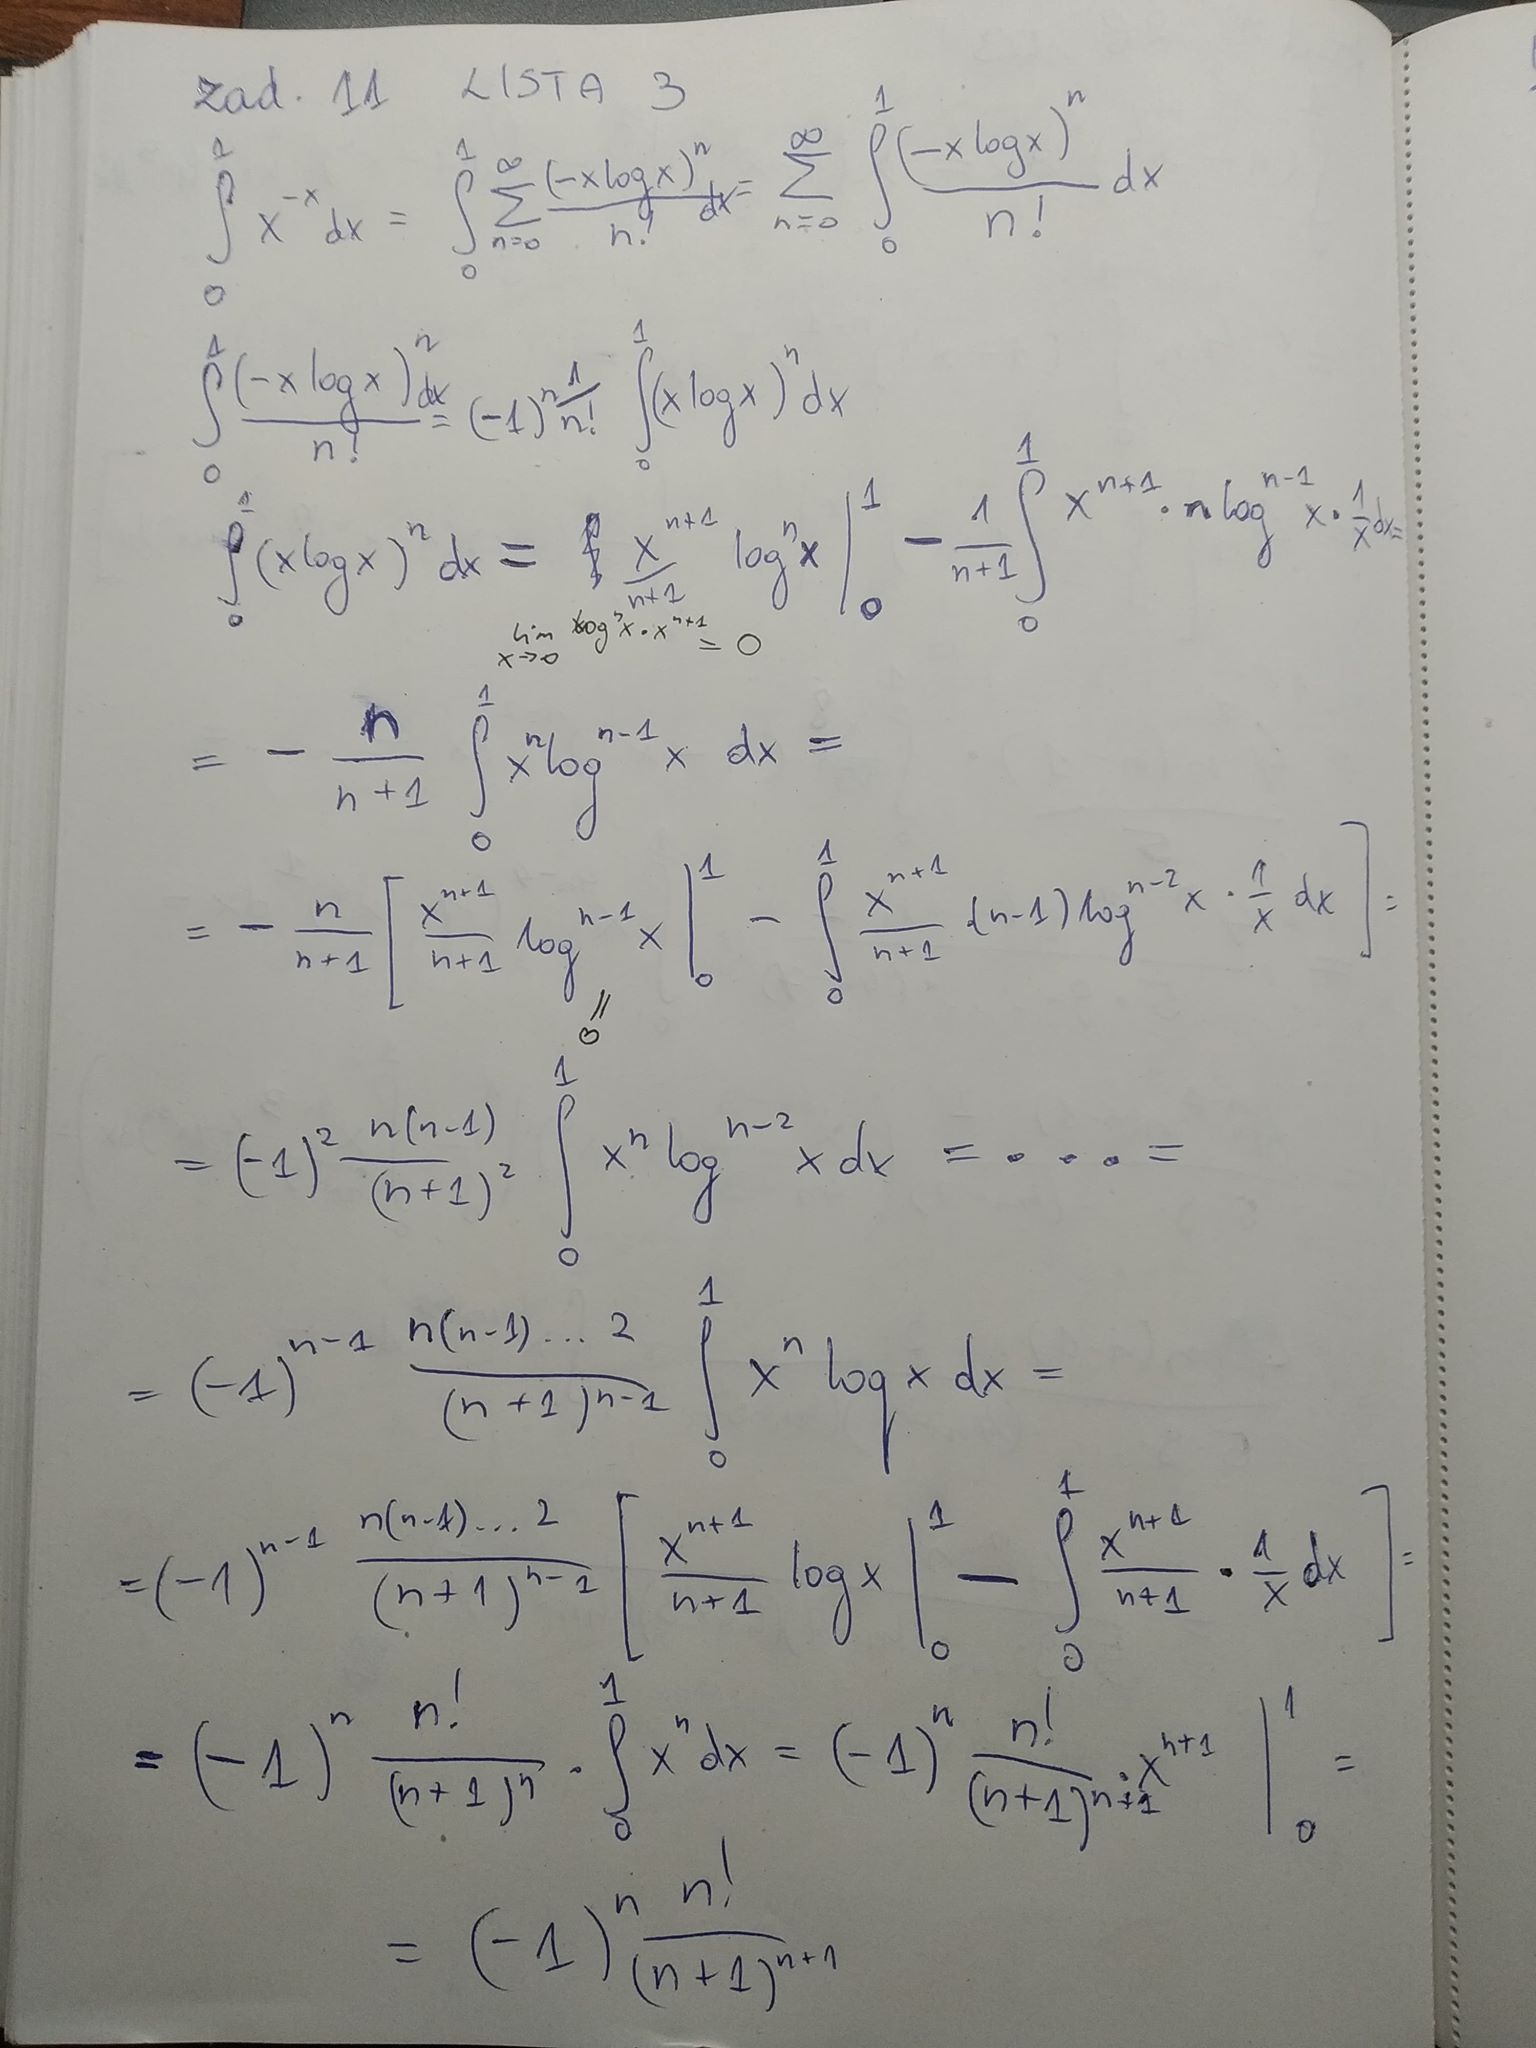 zad. 11 LISTA 3
∫₀¹ x^{-x} dx = ∫₀¹ ∑_{n=0}^{∞} (-x log x)^n / n! dx = ∑_{n=0}^{∞} ∫₀¹ (-x log x)^n / n! dx
∫₀¹ (-x log x)^n / n! dx = (-1)^n 1/n! ∫₀¹ (x log x)^n dx
∫₀¹ (x log x)^n dx = x^{n+1}/(n+1) log^n x |₀¹ - 1/(n+1) ∫₀¹ x^{n+1} · n log^{n-1} x · 1/x dx =
lim_{x→0} log^n x · x^{n+1} = 0
= - n/(n+1) ∫₀¹ x^n log^{n-1} x dx =
= - n/(n+1) [ x^{n+1}/(n+1) log^{n-1} x |₀¹ - ∫₀¹ x^{n+1}/(n+1) · (n-1) log^{n-2} x · 1/x dx ] =
= 0
= (-1)^2 n(n-1)/(n+1)^2 ∫₀¹ x^n log^{n-2} x dx = ... =
= (-1)^{n-1} n(n-1)...2/(n+1)^{n-1} ∫₀¹ x^n log x dx =
= (-1)^{n-1} n(n-1)...2/(n+1)^{n-1} [ x^{n+1}/(n+1) log x |₀¹ - ∫₀¹ x^{n+1}/(n+1) · 1/x dx ] =
= (-1)^n n!/(n+1)^n · ∫₀¹ x^n dx = (-1)^n n!/(n+1)^{n+1} · x^{n+1} |₀¹ =
= (-1)^n n!/(n+1)^{n+1}